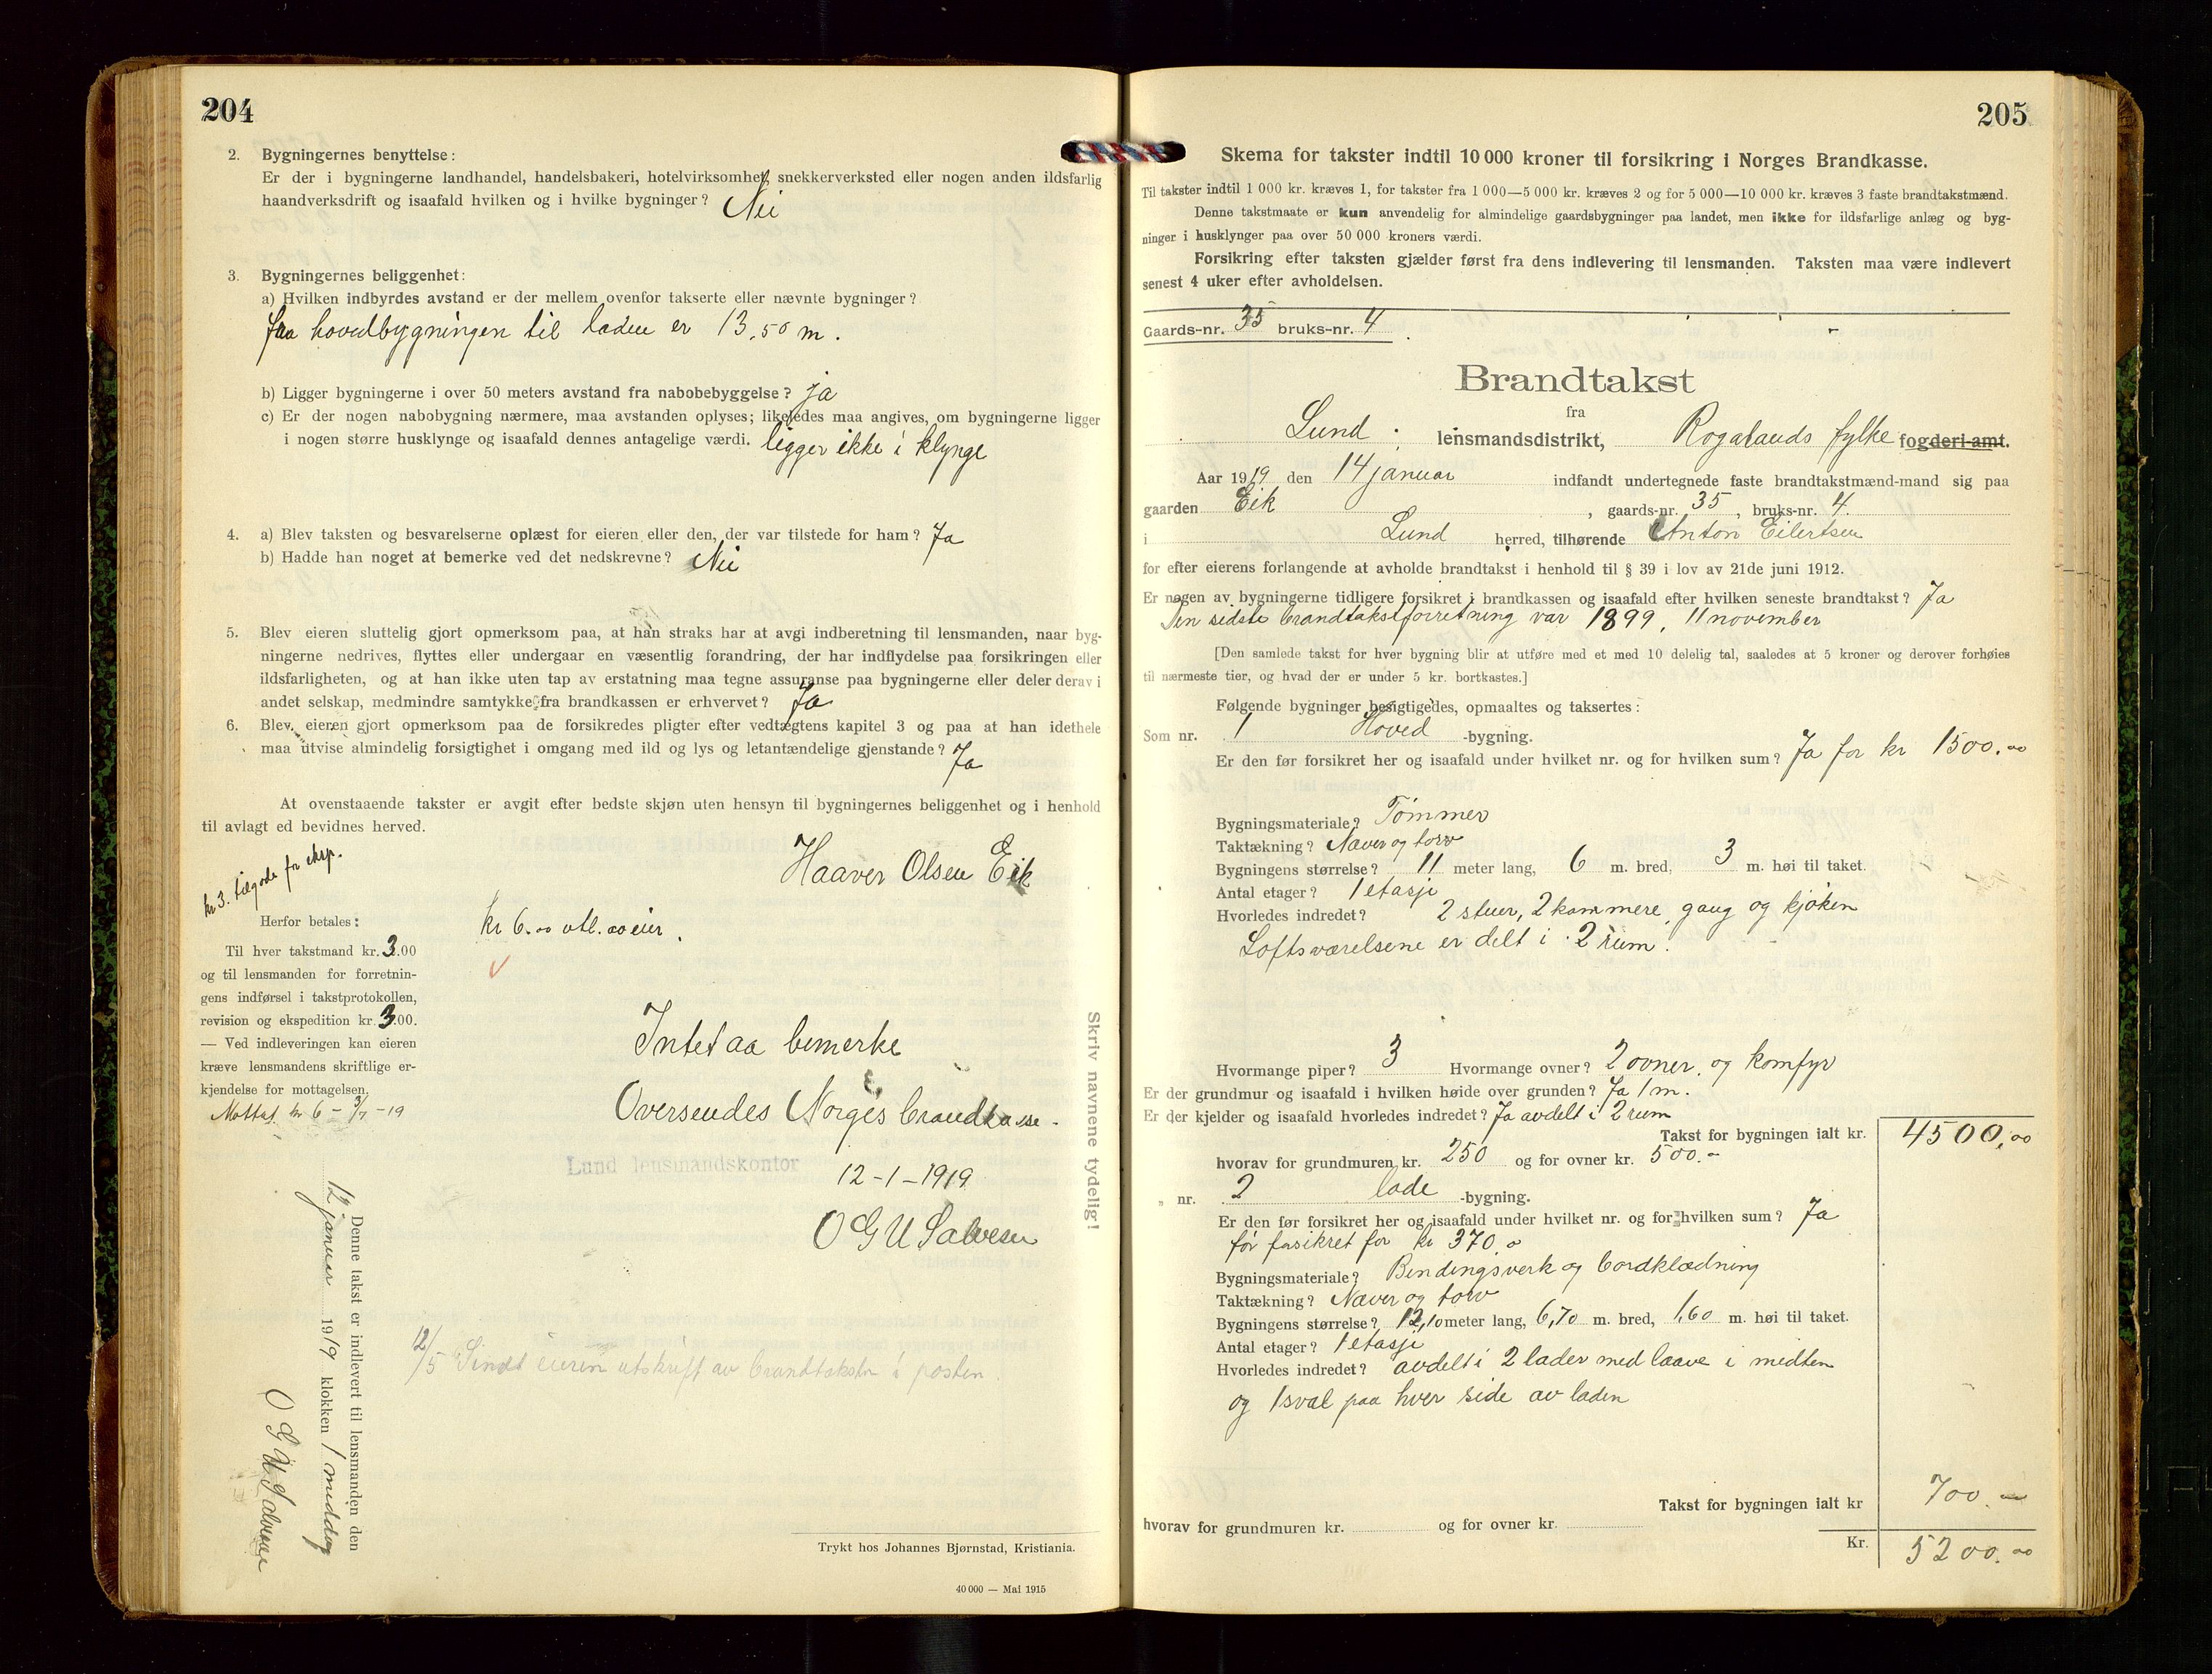 204
2. Bygningernes benyttelse:
Er der i bygningerne landhandel, handelsbakeri, hotelvirksomhet, snekkerverksted eller nogen anden ildsfarlig
haandverksdrift og isaafald hvilken og i hvilke bygninger? Nei
3. Bygningernes beliggenhet:
a) Hvilken indbyrdes avstand er der mellem ovenfor takserte eller nævnte bygninger?
fra hovedbygningen til laden er 13,50 m.
b) Ligger bygningerne i over 50 meters avstand fra nabobebyggelse? ja
c) Er der nogen nabobygning nærmere, maa avstanden oplyses; likeledes maa angives, om bygningerne ligger
i nogen større husklynge og isaafald dennes antagelige værdi. ligger ikke i klynge
4. a) Blev taksten og besvarelserne oplæst for eieren eller den, der var tilstede for ham? Ja
b) Hadde han noget at bemerke ved det nedskrevne? Nei
5. Blev eieren sluttelig gjort opmerksom paa, at han straks har at avgi indberetning til lensmanden, naar byg-
ningerne nedrives, flyttes eller undergaar en væsentlig forandring, der har indflydelse paa forsikringen eller
ildsfarligheten, og at han ikke uten tap av erstatning maa tegne assuranse paa bygningerne eller deler derav i
andet selskap, medmindre samtykke fra brandkassen er erhvervet? Ja
6. Blev eieren gjort opmerksom paa de forsikredes pligter efter vedtægtens kapitel 3 og paa at han idethele
maa utvise almindelig forsigtighet i omgang med ild og lys og letantændelige gjenstande? Ja
At ovenstaaende takster er avgit efter bedste skjøn uten hensyn til bygningernes beliggenhet og i henhold
til avlagt ed bevidnes herved.
Haaver Olsen Eik
kr 3. tilgode for eksp.
Herfor betales:
kr 6.00 utl. av eier.
Til hver takstmand kr. 3.00
og til lensmanden for forretnin-
gens indførsel i takstprotokollen,
revision og ekspedition kr. 3.00.
— Ved indleveringen kan eieren
kræve lensmandens skriftlige er-
kjendelse for mottagelsen.
Mottat kr 6 - 3/7 -19
Intet aa bemerke
Oversendes Norges brandkasse.
Lund lensmandskontor
12-1-1919
O G U Salvesen
Skriv navnene tydelig!
Denne takst er indlevert til lensmanden den
12 januar 1919 klokken 1 middag
O G U Salvesen
12/5 Sendt eieren utskrift av brandtaksten i posten.
Trykt hos Johannes Bjørnstad, Kristiania.
40 000 — Mai 1915
205
Skema for takster indtil 10 000 kroner til forsikring i Norges Brandkasse.
Til takster indtil 1 000 kr. kræves 1, for takster fra 1 000—5 000 kr. kræves 2 og for 5 000—10 000 kr. kræves 3 faste brandtakstmænd.
Denne takstmaate er kun anvendelig for almindelige gaardsbygninger paa landet, men ikke for ildsfarlige anlæg og byg-
ninger i husklynger paa over 50 000 kroners værdi.
Forsikring efter taksten gjælder først fra dens indlevering til lensmanden. Taksten maa være indlevert
senest 4 uker efter avholdelsen.
Gaards-nr. 35 bruks-nr. 4
Brandtakst
fra
Lund lensmandsdistrikt, Rogalands fylke fogderi-amt.
Aar 1919 den 14 januar indfandt undertegnede faste brandtakstmænd-mand sig paa
gaarden Eik, gaards-nr. 35, bruks-nr. 4.
i Lund herred, tilhørende Anton Eilertsen
for efter eierens forlangende at avholde brandtakst i henhold til § 39 i lov av 21de juni 1912.
Er nogen av bygningerne tidligere forsikret i brandkassen og isaafald efter hvilken seneste brandtakst? Ja
Den sidste brandtakstforretning var 1899, 11 november
[Den samlede takst for hver bygning blir at utføre med et med 10 delelig tal, saaledes at 5 kroner og derover forhøies
til nærmeste tier, og hvad der er under 5 kr. bortkastes.]
Følgende bygninger besigtigedes, opmaaltes og taksertes:
Som nr. 1 Hoved -bygning.
Er den før forsikret her og isaafald under hvilket nr. og for hvilken sum? Ja for kr 1500.00
Bygningsmateriale? Tømmer
Taktækning? Næver og torv
Bygningens størrelse? 11 meter lang, 6 m. bred, 3 m. høi til taket.
Antal etager? 1 etasje
Hvorledes indredet? 2 stuer, 2 kammere, gang og kjøken
Loftsværelsene er delt i 2 rum.
Hvormange piper? 3 Hvormange ovner? 2 ovner, og komfyr
Er der grundmur og isaafald i hvilken høide over grunden? Ja 1 m.
Er der kjelder og isaafald hvorledes indredet? Ja avdelt i 2 rum
Takst for bygningen ialt kr. 4500,00
hvorav for grundmuren kr. 250 og for ovner kr. 500.-
„ nr. 2 lade -bygning.
Er den før forsikret her og isaafald under hvilket nr. og for hvilken sum? Ja
før forsikret for kr 370.0
Bygningsmateriale? Bindingsverk og bordklædning
Taktækning? Næver og torv
Bygningens størrelse? 12,10 meter lang, 6,70 m. bred, 1,60 m. høi til taket.
Antal etager? 1 etasje
Hvorledes indredet? avdelt i 2 lader med laave i midten
og 1 sval paa hver side av laden
Takst for bygningen ialt kr 700.—
hvorav for grundmuren kr. og for ovner kr.
Kr. 5200.00